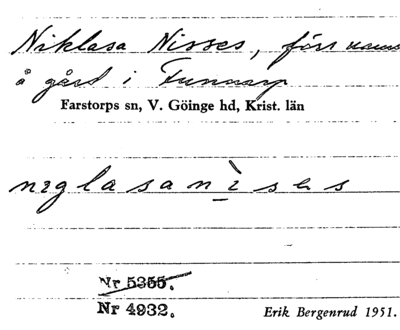 Niklasa Nisses, förr namn
å gård i Funnarp
Farstorps sn, V. Göinge hd, Krist. län
nɪglasanìsəs
Nr 5355.
Nr 4932.
Erik Bergenrud 1951.